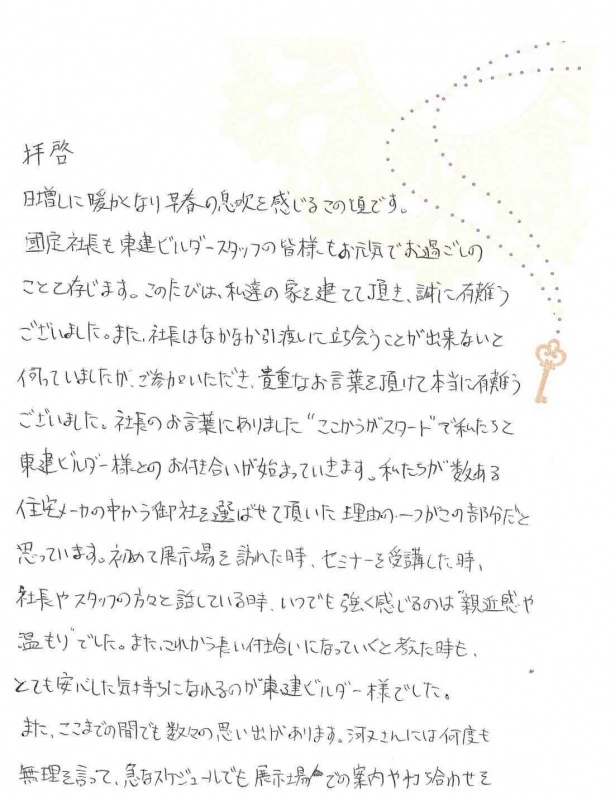 拝啓
日増しに暖かくなり早春の息吹を感じるこの頃です。
國定社長も東建ビルダースタッフの皆様もお元気でお過ごしの
ことと存じます。このたびは、私達の家を建てて頂き、誠に有難う
ございました。また、社長はなかなか引渡しに立ち会うことが出来ないと
伺っていましたが、ご参加いただき、貴重なお言葉を頂けて本当に有難う
ございました。社長のお言葉にありました"ここからがスタート"で私たちと
東建ビルダー様とのお付き合いが始まっていきます。私たちが数ある
住宅メーカの中から御社を選ばせて頂いた理由の一つがこの部分だと
思っています。初めて展示場を訪れた時、セミナーを受講した時、
社長やスタッフの方々と話している時、いつでも強く感じるのは"親近感や
温もり"でした。また、これから長い付き合いになっていくと考えた時も、
とても安心した気持ちになれるのが東建ビルダー様でした。
また、ここまでの間でも数々の思い出があります。河又さんには何度も
無理を言って、急なスケジュールでも展示場での案内や打ち合わせを